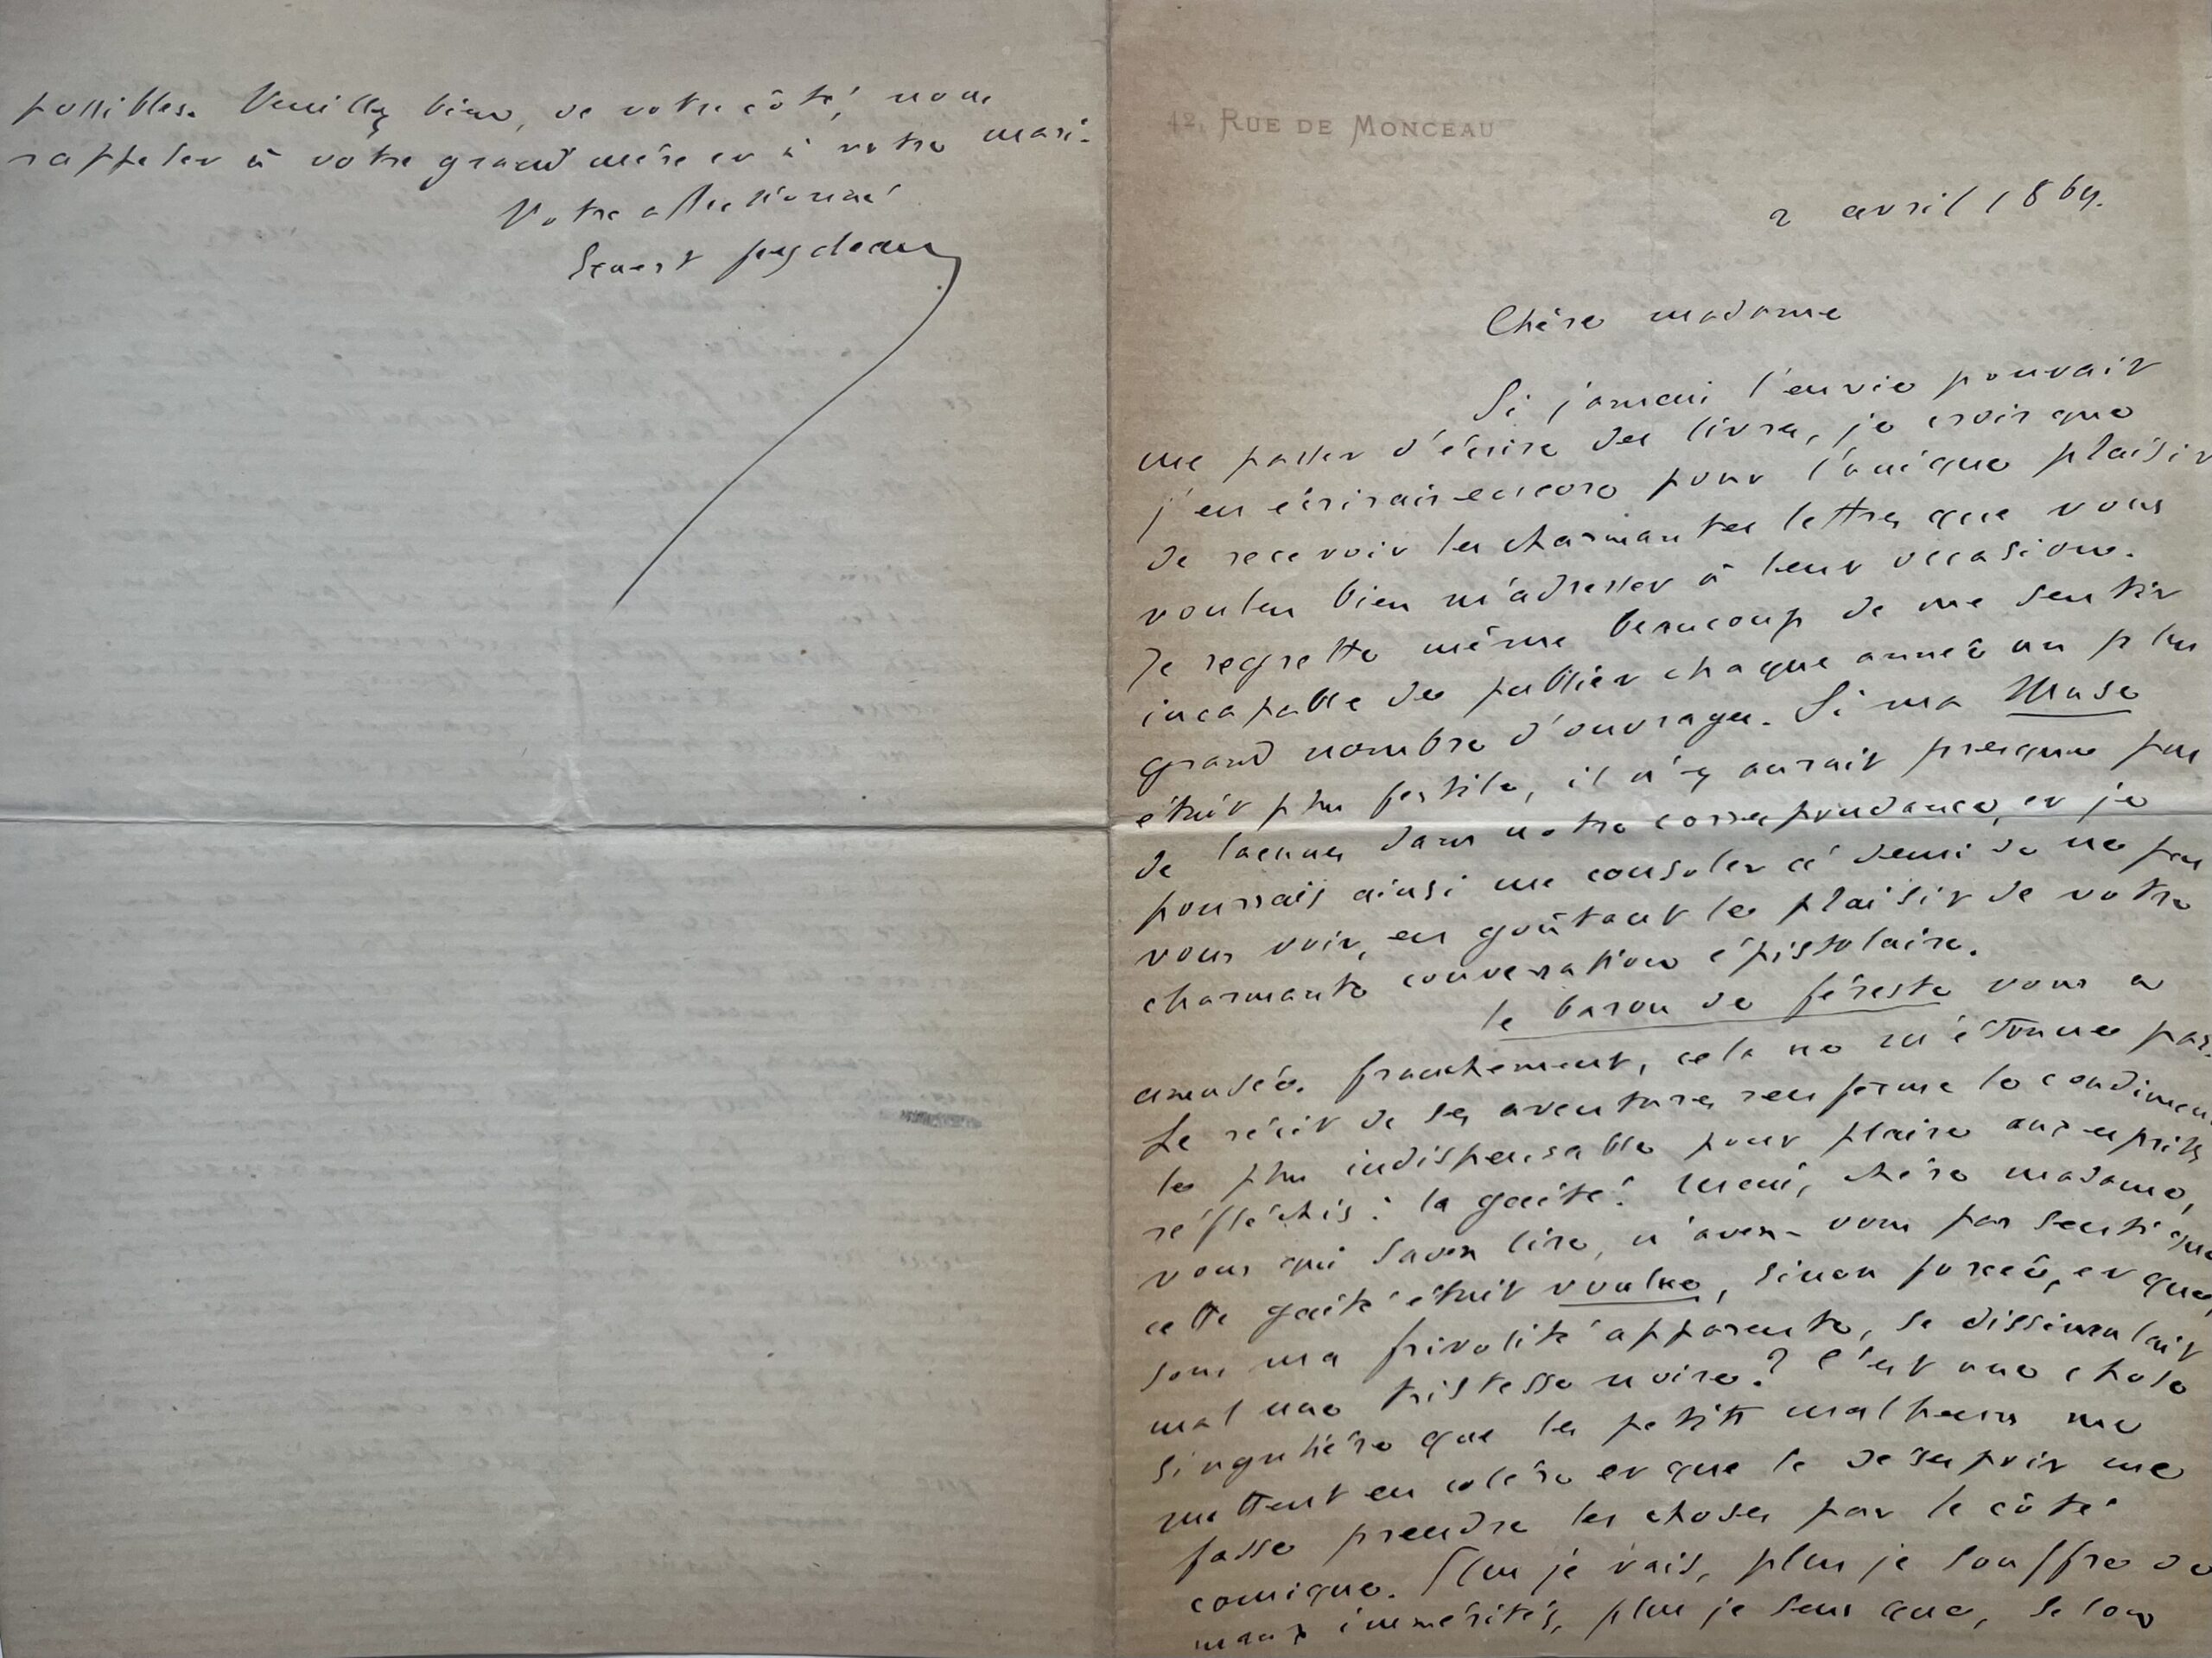 12, RUE DE MONCEAU
2 avril 1869.
Chère madame
Si jamais l'envie pouvait
me passer d'écrire des livres, je crois que
j'en écrirais encore pour l'unique plaisir
de recevoir les charmantes lettres que vous
voulez bien m'adresser à leur occasion.
Je regrette même beaucoup de me sentir
incapable de publier chaque année un plus
grand nombre d'ouvrages. Si ma Muse
était plus fertile, il n'y aurait presque pas
de lacunes dans notre correspondance, et je
pourrais ainsi me consoler à demi de ne pas
vous voir, en goûtant le plaisir de votre
charmante conversation épistolaire.
le baron de féreste vous a
amusée. franchement, cela ne m'étonne pas.
Le récit de ses aventures renferme le condiment
le plus indispensable pour plaire aux esprits
réfléchis : la gaité. Mais, chère madame,
vous qui savez lire, n'avez-vous pas senti que
cette gaité était voulue, sinon forcée, et que,
sous ma frivolité apparente, se dissimulait
mal une tristesse noire? C'est une chose
singulière que les petits malheurs me
mettent en colère et que le désespoir me
fasse prendre les choses par le côté
comique. Plus je vais, plus je souffre de
maux immérités, plus je sens que, selon
possibles. Veuillez bien, de votre côté, nous
rappeler à votre grand mère et à votre mari.
Votre affectionné
Ernest feydeau